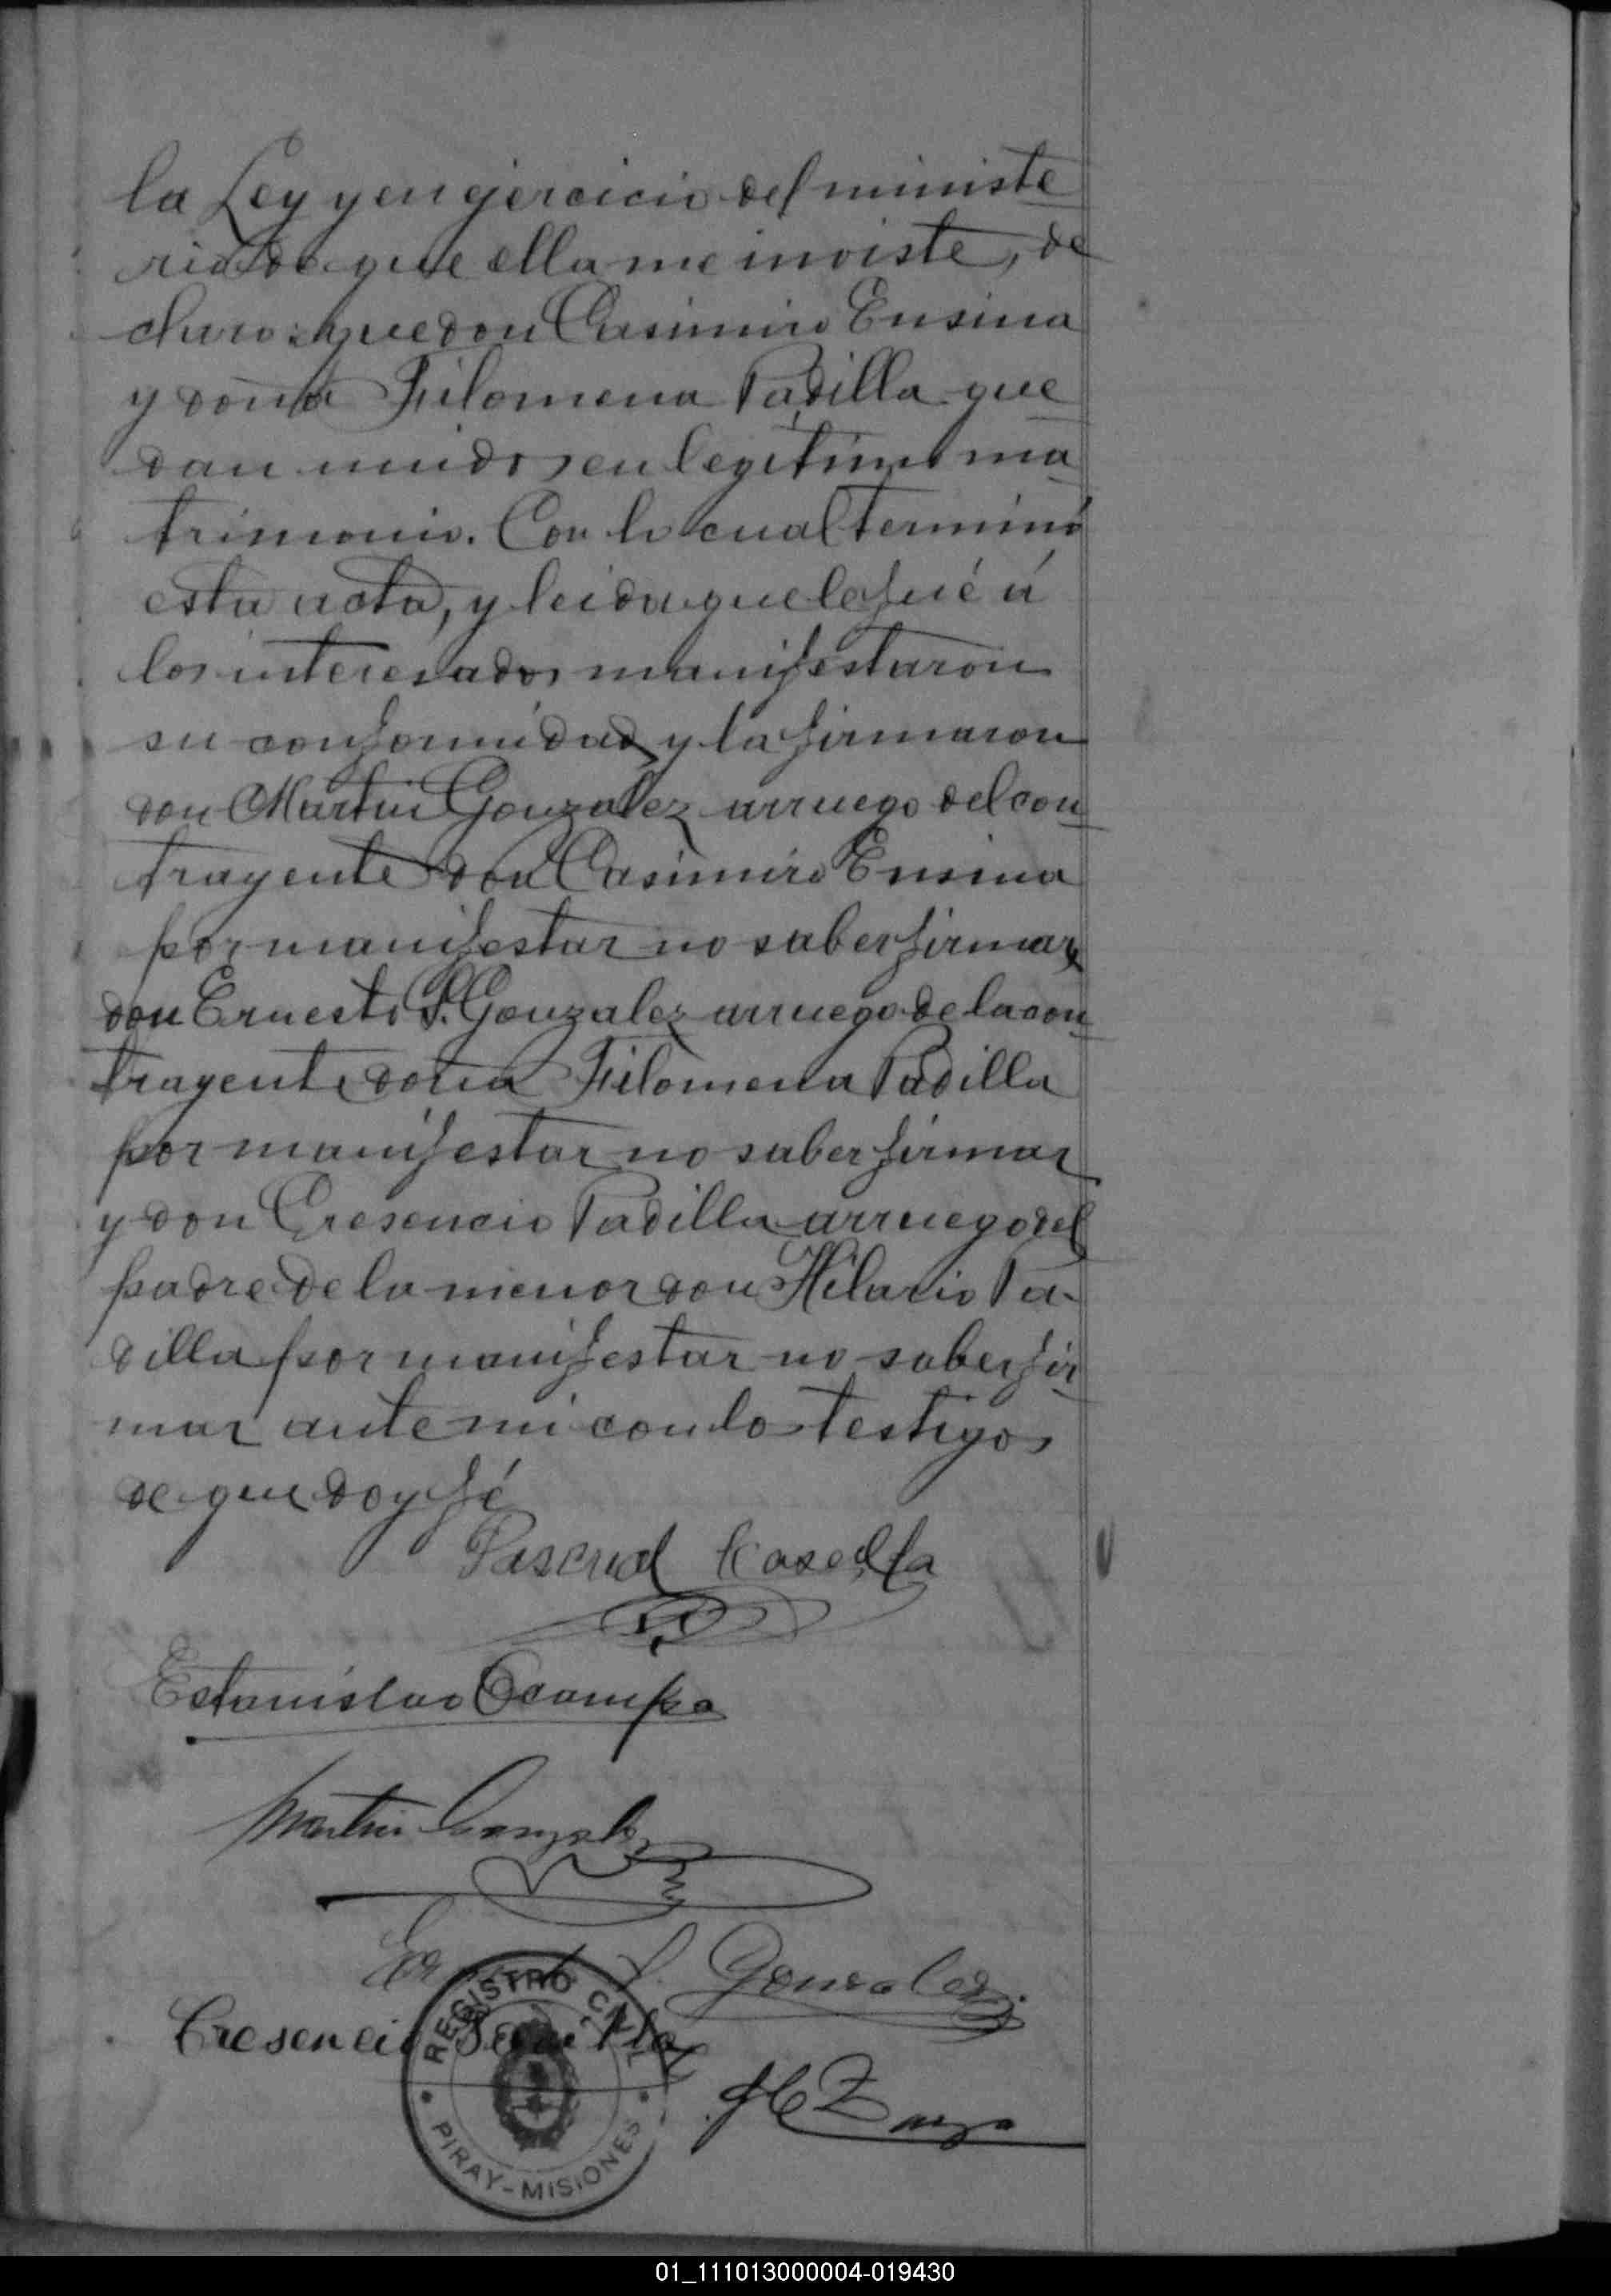 la Ley y en ejercicio del ministe
rio de que ella me inviste, de
claro: que don Casimiro Ensina
y doña Filomena Padilla que
dan unidos en legítimo ma
trimonio. Con lo cual terminó
esta acta, y leida que les fué á
los interesados manifestaron
su conformidad y la firmaron
don Martin Gonzalez arruego del con
trayente don Casimiro Ensina
por manifestar no saber firmar,
don Ernesto S. Gonzalez arruego de la con
trayente doña Filomena Padilla
por manifestar no saber firmar
y don Cresencio Padilla arruego del
padre de la menor don Hilario Pa-
dilla por manifestar no saber fir
mar ante mi con los testigos
de que doy fé
Pascual Casella
Estanislao Ocampo
Martin Gonzalez
S. Gonzalez.
Cresencio Padilla
REGISTRO CIVIL
PIRAY-MISIONES
01_111013000004-019430